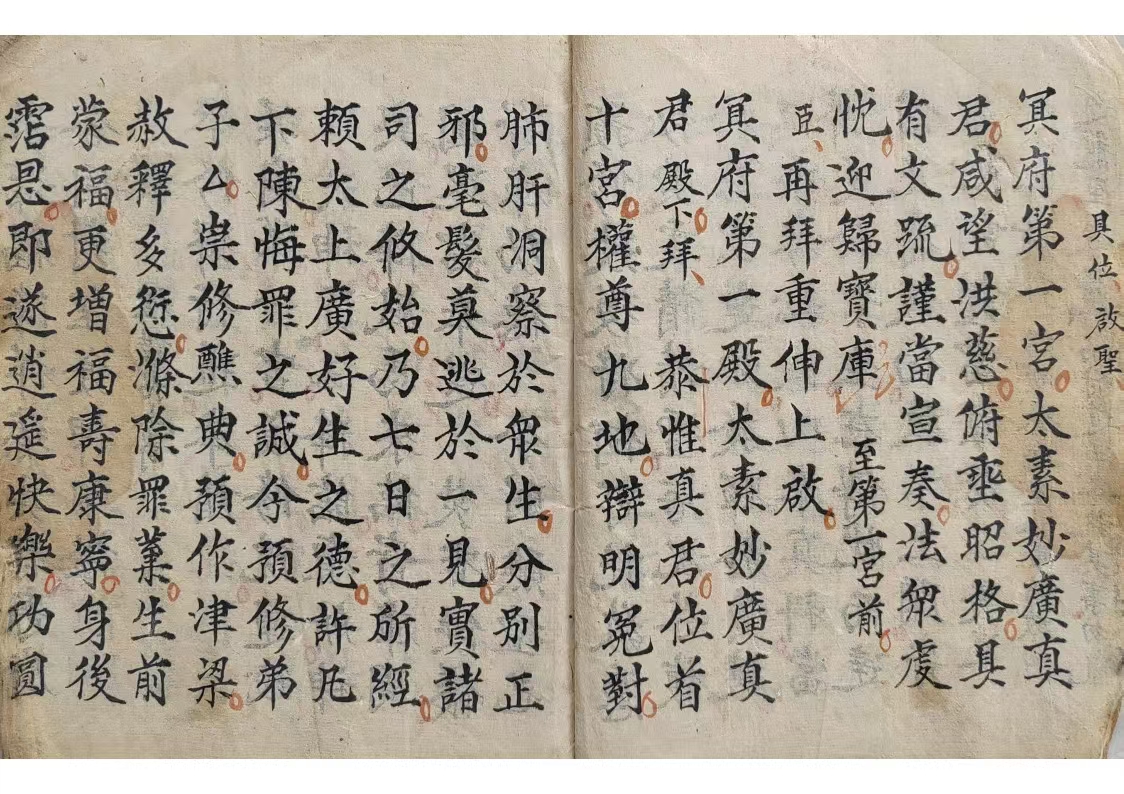 具位 啟聖
冥府第一宮太素妙廣真
君咸望洪慈俯垂昭格具
有文疏謹當宣奏法眾虔
忱迎歸寶庫 至第一宮前
臣再拜重伸上啟
冥府第一殿太素妙廣真
君殿下拜 恭惟真君位首
十宮權尊九地辯明冤對
肺肝洞察於眾生分別正
邪毫髮莫逃於一見實諸
司之攸始乃七日之所經
賴太上廣好生之德許凡
下陳悔罪之誠今預修弟
子厶崇修醮典預作津梁
赦釋多愆滌除罪業生前
蒙福更增福壽康寧身後
霑恩即遂逍遙快樂功圓